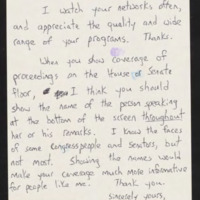 I watch your networks often,
and appreciate the quality and wide
range of your programs. Thanks.
When you show coverage of
proceedings on the House or Senate
floor, I think you should
show the name of the person speaking
at the bottom of the screen throughout
har or his remarks. I know the faces
of some Congresspeople and Senators, but
not most. Showing the names would
make your coverage much more informative
for people like me. Thank you.
Sincerely yours,